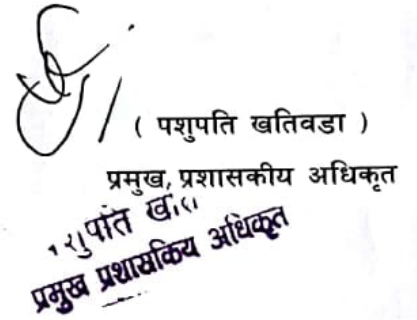 ( पशुपति खतिवडा )
प्रमुख, प्रशासकीय अधिकृत
प्रमुख प्रशासकिय अधिकृत